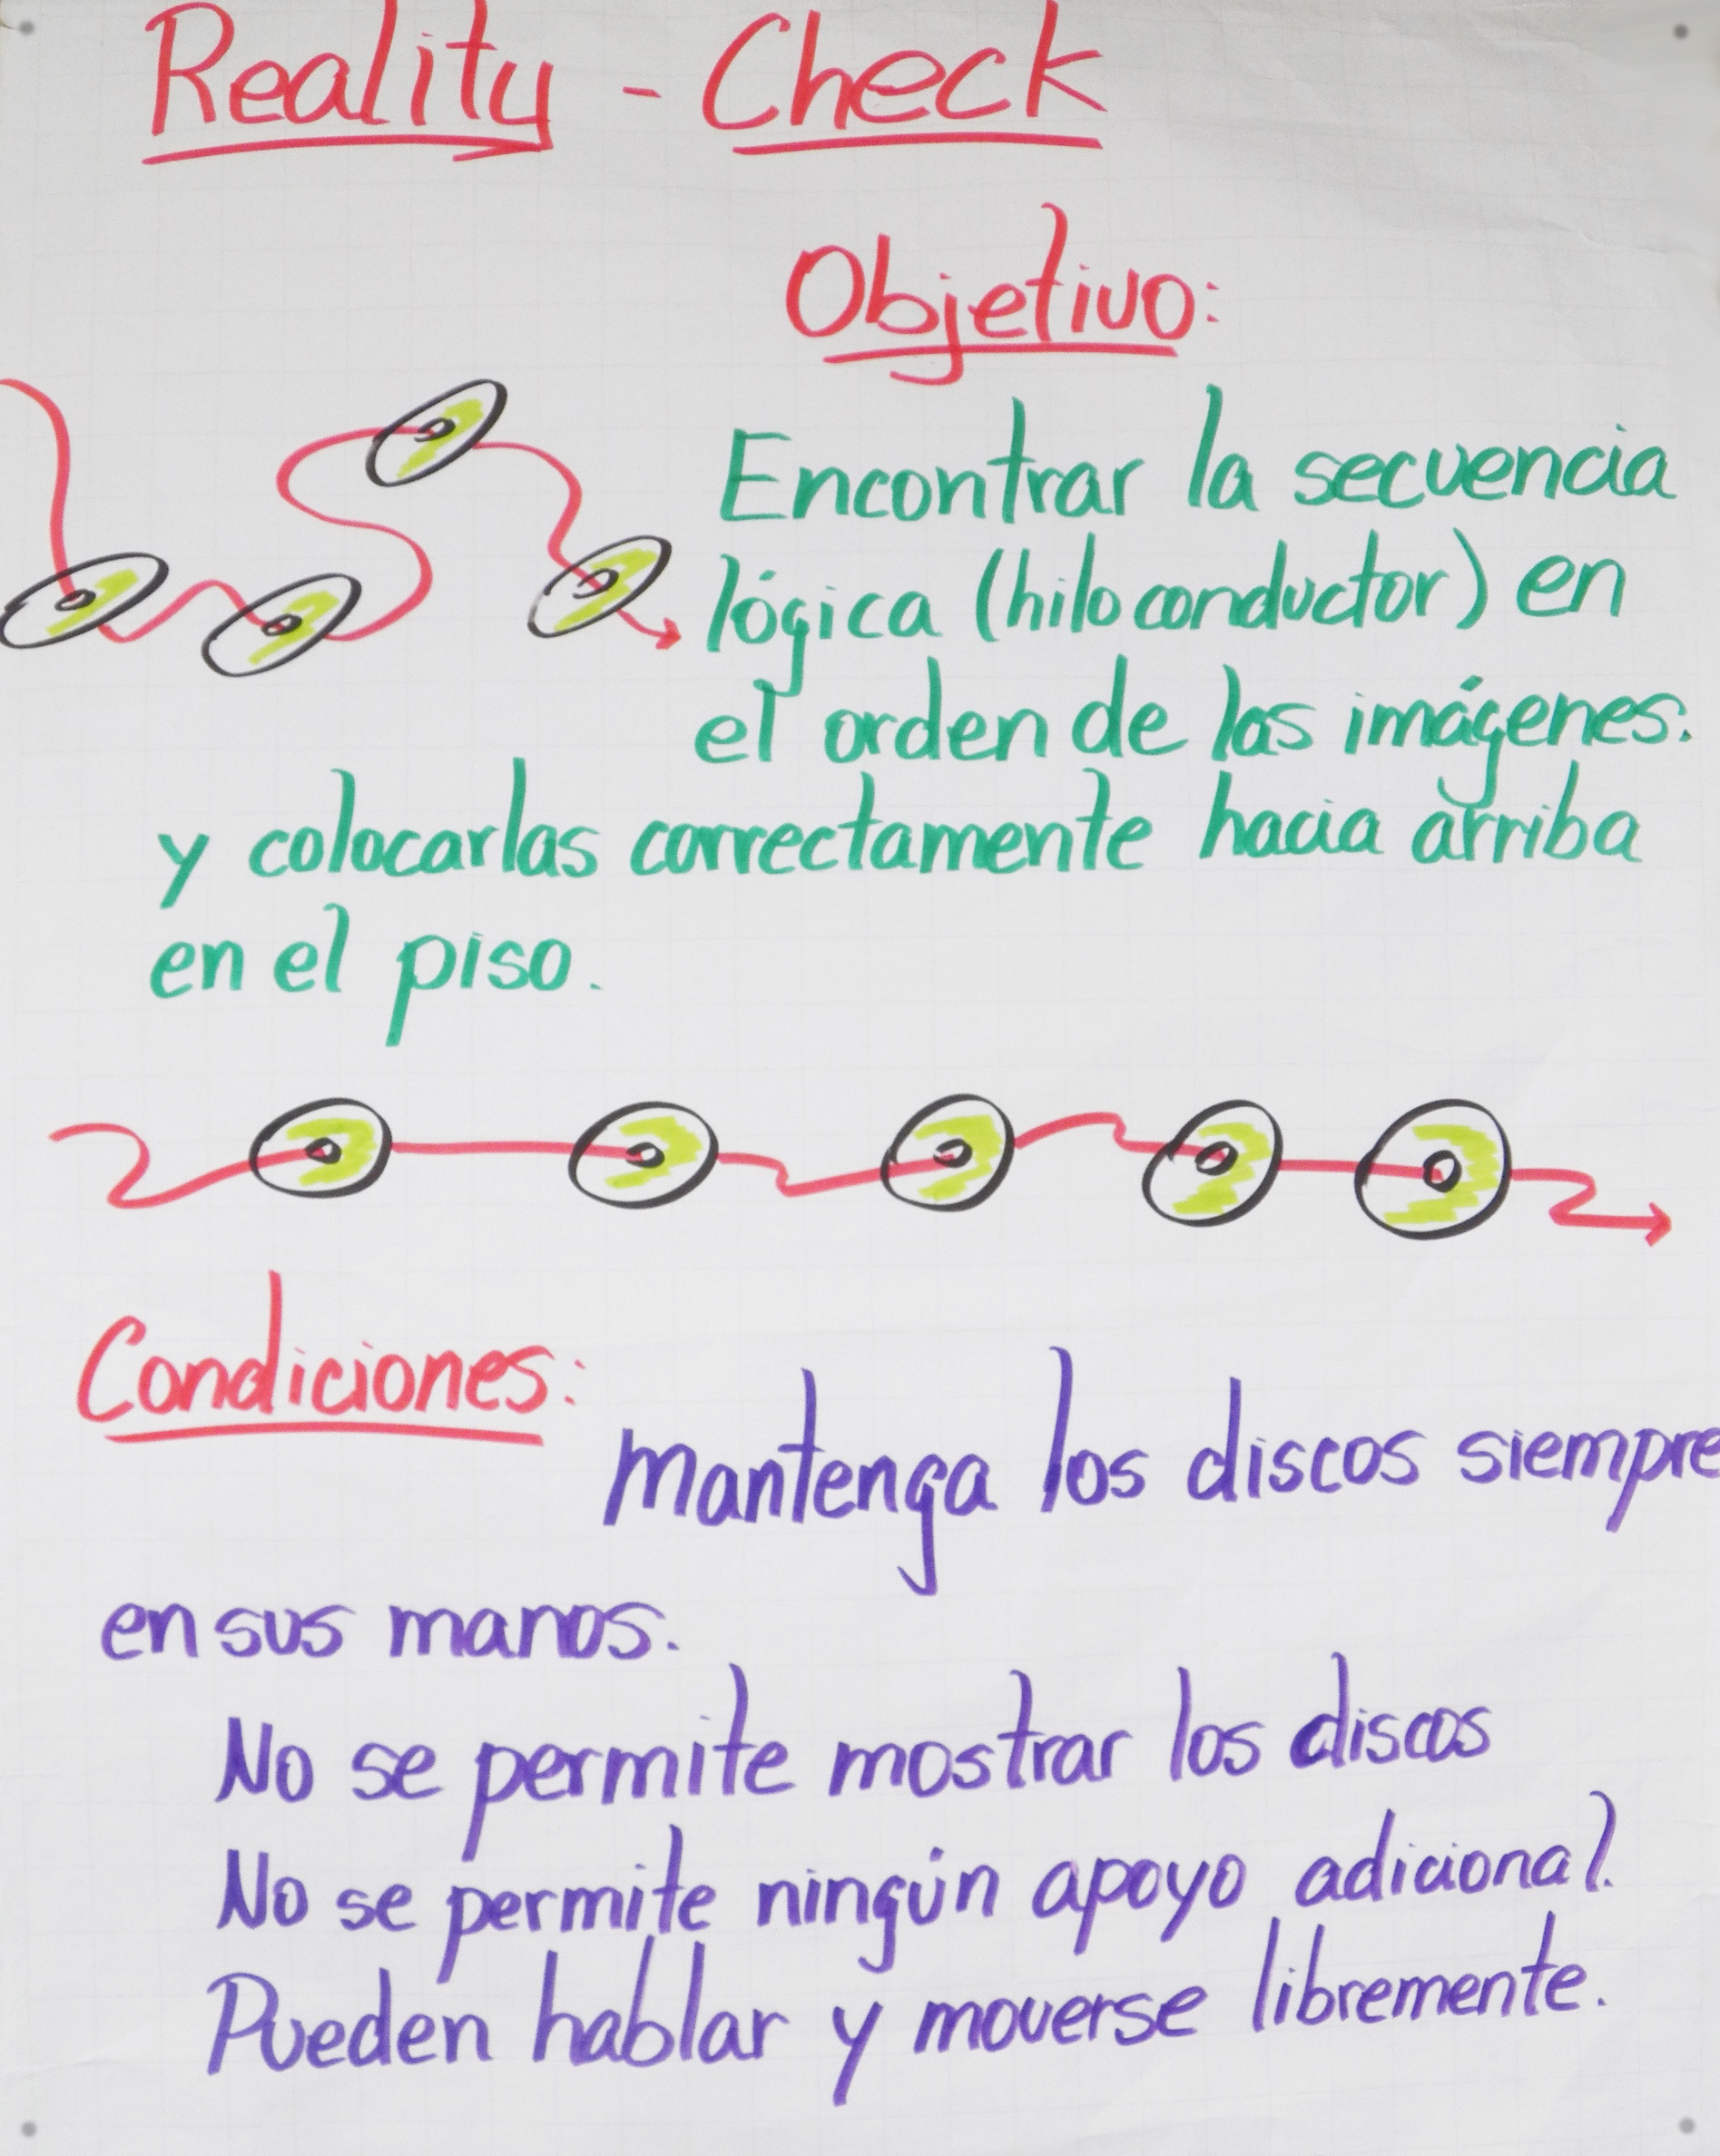 Reality - Check
Objetivo:
Encontrar la secuencia
lógica (hilo conductor) en
el orden de las imágenes.
y colocarlas correctamente hacia arriba
en el piso.
Condiciones:
Mantenga los discos siempre
en sus manos.
No se permite mostrar los discos
No se permite ningún apoyo adicional.
Pueden hablar y moverse libremente.